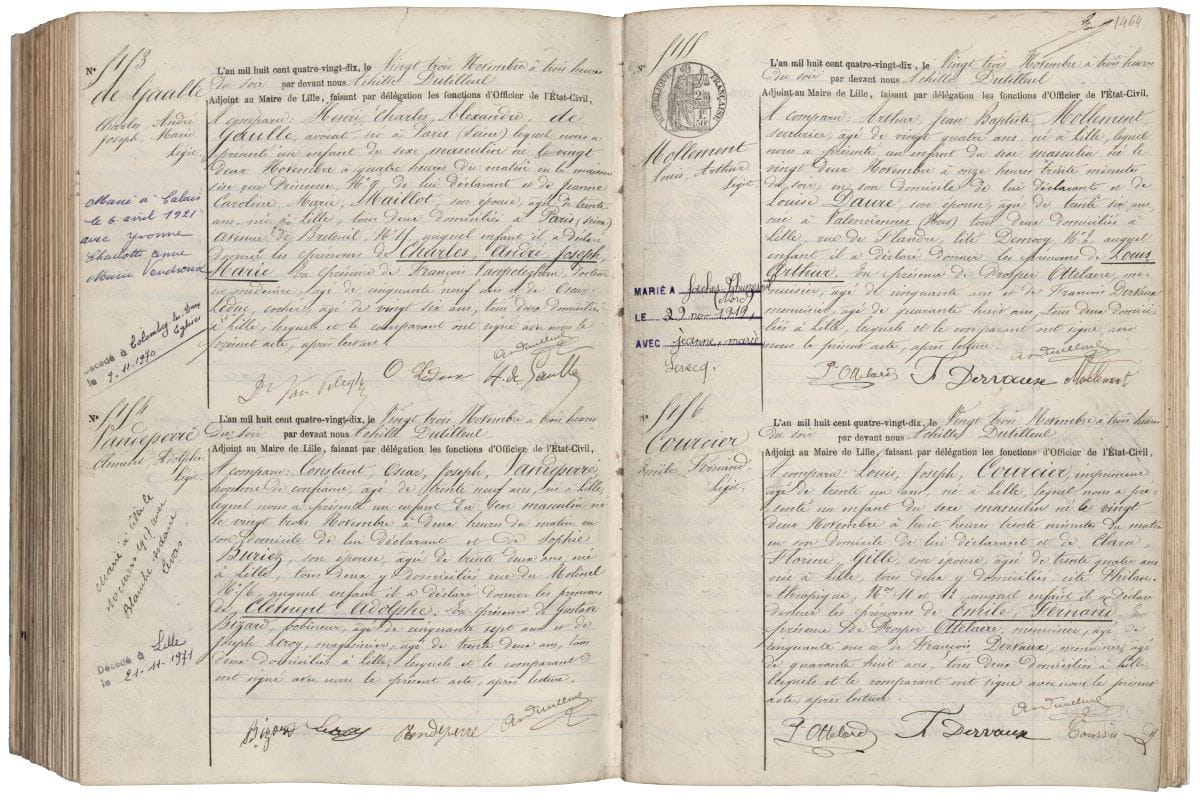 N° 4153
de Gaulle
Charles, André
Joseph, Marie
Légit.
Marié à Calais
le 6 avril 1921
avec Yvonne
Charlotte Anne
Marie Vendroux
Décédé à Colombey les Deux
Eglises
le 9-11-1970
L'an mil huit cent quatre-vingt-dix, le Vingt trois Novembre à trois heures
du soir par devant nous Achille Dutilleul
Adjoint au Maire de Lille, faisant par délégation les fonctions d'Officier de l'État-Civil,
A comparu: Henri, Charles, Alexandre, de
Gaulle, avocat, né à Paris (Seine) lequel nous a
présenté un enfant du sexe masculin né le vingt
deux Novembre à quatre heures du matin en la maison
sise rue Princesse, N° 9, de lui déclarant et de Jeanne
Caroline, Marie, Maillot, son épouse, âgée de trente
ans, née à Lille, tous deux domiciliés à Paris, (Seine)
avenue de Breteuil, N° 15, auquel enfant il a déclaré
donner les prénoms de Charles, André, Joseph,
Marie. En présence de François docteur
en médecine, âgé de cinquante neuf ans et de Oscar
Leduc, cocher, âgé de vingt six ans, tous deux domiciliés
à Lille, lesquels et le comparant ont signé avec nous le
présent acte, après lecture.
O Leduc H. de Gaulle
N° 4154
Vandeperre
Clément Adolphe
Légit.
Marié à Lille le
1917 avec
Blanche
Décédé à Lille
le 21-11-1971
L'an mil huit cent quatre-vingt-dix, le Vingt trois Novembre à trois heures
du soir par devant nous Achille Dutilleul.
Adjoint au Maire de Lille, faisant par délégation les fonctions d'Officier de l'État-Civil,
A comparu: Constant, Oscar, Joseph, Vandeperre
homme de confiance, âgé de trente neuf ans, né à Lille,
lequel nous a présenté un enfant du sexe masculin né
le vingt trois Novembre à deux heures du matin en
son domicile de lui déclarant et de Sophie
Buriez, son épouse, âgée de trente deux ans, née
à Lille, tous deux y domiciliés rue du Molinel
N° 56, auquel enfant il a déclaré donner les prénoms
de Clément Adolphe. En présence de Gustave
Bizard, bobineur, âgé de cinquante sept ans et de
Joseph Leroy, magasinier, âgé de trente deux ans, tous
deux domiciliés à Lille, lesquels et le comparant
ont signé avec nous le présent acte, après lecture.
Bizard Leroy Vandeperre
1464
N° 4155
RÉPUBLIQUE FRANÇAISE
Mollement
Louis, Arthur
Légit.
MARIÉ A
(Nord)
LE 29 nov 1919
AVEC Jeanne, Marie
Levecq.
L'an mil huit cent quatre-vingt-dix, le Vingt trois Novembre à trois heures
du soir par devant nous Achille Dutilleul
Adjoint au Maire de Lille, faisant par délégation les fonctions d'Officier de l'État-Civil,
A comparu: Arthur, Jean Baptiste, Mollement,
serrurier, âgé de vingt quatre ans, né à Lille, lequel
nous a présenté un enfant du sexe masculin né le
vingt deux Novembre à onze heures trente minutes
du soir, en son domicile de lui déclarant et de
Louise Dauve, son épouse, âgée de trente six ans,
née à Valenciennes (Nord) tous deux domiciliés à
Lille, rue de Flandre, cité N° 2, auquel
enfant il a déclaré donner les prénoms de Louis
Arthur. En présence de Prosper Ottelaere, me-
nuisier, âgé de cinquante ans et de François Dervaux
menuisier, âgé de quarante huit ans, tous deux domici-
liés à Lille, lesquels et le comparant ont signé, avec
nous le présent acte, après lecture.
P Ottelaere F Dervaux Mollement
N° 4156
Courcier
Emile, Fernand
Légit.
L'an mil huit cent quatre-vingt-dix, le Vingt trois Novembre à trois heures
du soir par devant nous Achille Dutilleul
Adjoint au Maire de Lille, faisant par délégation les fonctions d'Officier de l'État-Civil,
A comparu: Louis, Joseph, Courcier, imprimeur
âgé de trente un ans, né à Lille, lequel nous a pré-
senté un enfant du sexe masculin né le vingt
deux Novembre à huit heures trente minutes du matin
en son domicile de lui déclarant et de Clara,
Florine, Gille, son épouse, âgée de trente quatre ans
née à Lille, tous deux y domiciliés, cité Philan-
thropique, Nos 11 et 12, auquel enfant il a déclaré
donner les prénoms de Emile, Fernand. En
présence de Prosper Ottelaere, menuisier, âgé de
cinquante ans et de François Dervaux, menuisier, âgé
de quarante huit ans, tous deux domiciliés à Lille,
lesquels et le comparant ont signé avec nous le présent
acte, après lecture.
P Ottelaere F Dervaux Courcier